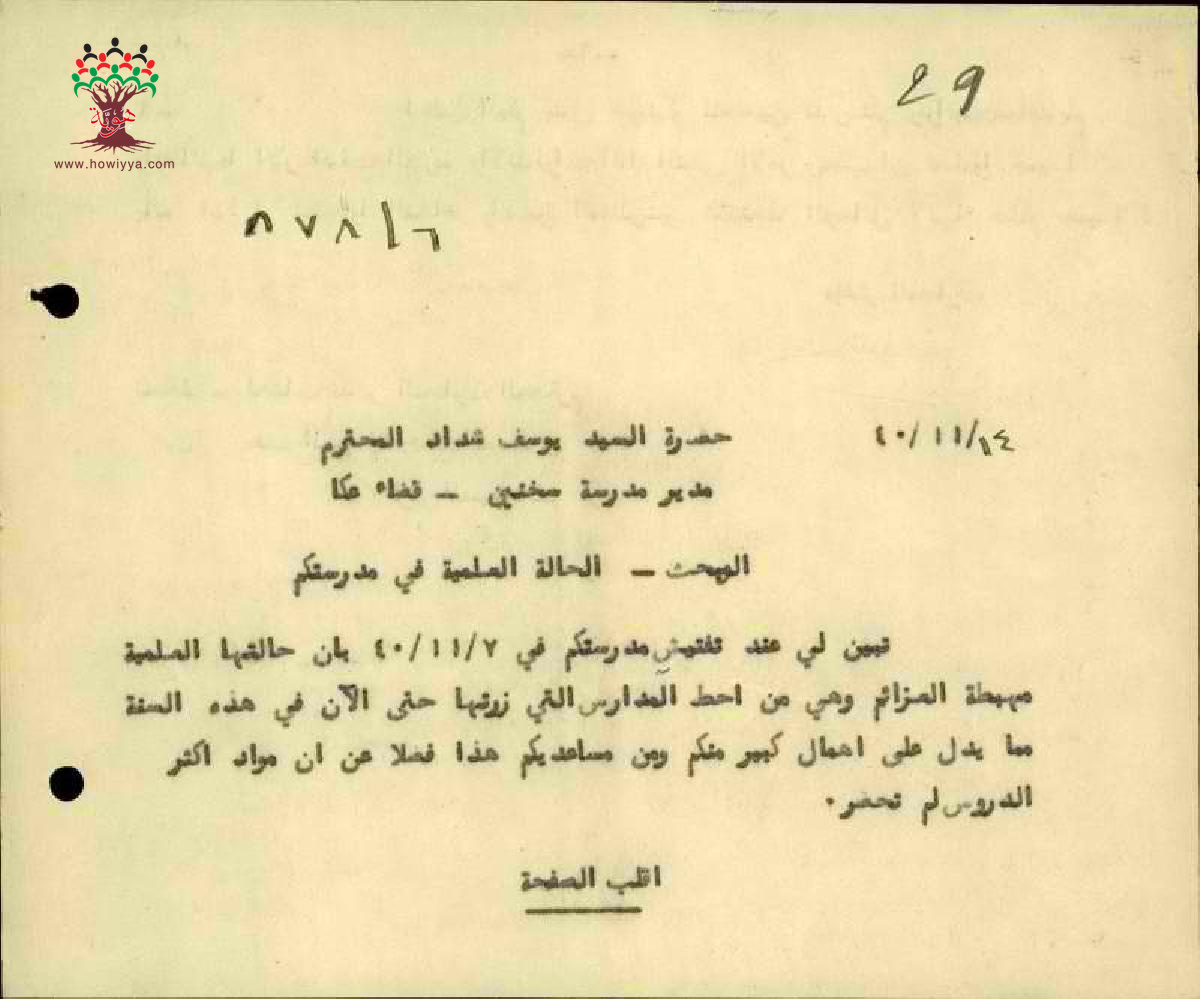 29
www.howiyya.com
٨٧٨/٦
٤٠/١١/١٤
حضرة السيد يوسف شداد المحترم
مدير مدرسة سخنين – قضاء عكا
المبحث – الحالة العلمية في مدرستكم
تبين لي عند تفتيش مدرستكم في ٤٠/١١/٧ بان حالتها العلمية
مهبطة العزائم وهي من احط المدارس التي زرتها حتى الآن في هذه السنة
مما يدل على اهمال كبير منكم ومن مساعديكم هذا فضلا عن ان مواد اكثر
الدروس لم تحضر.
اقلب الصفحة